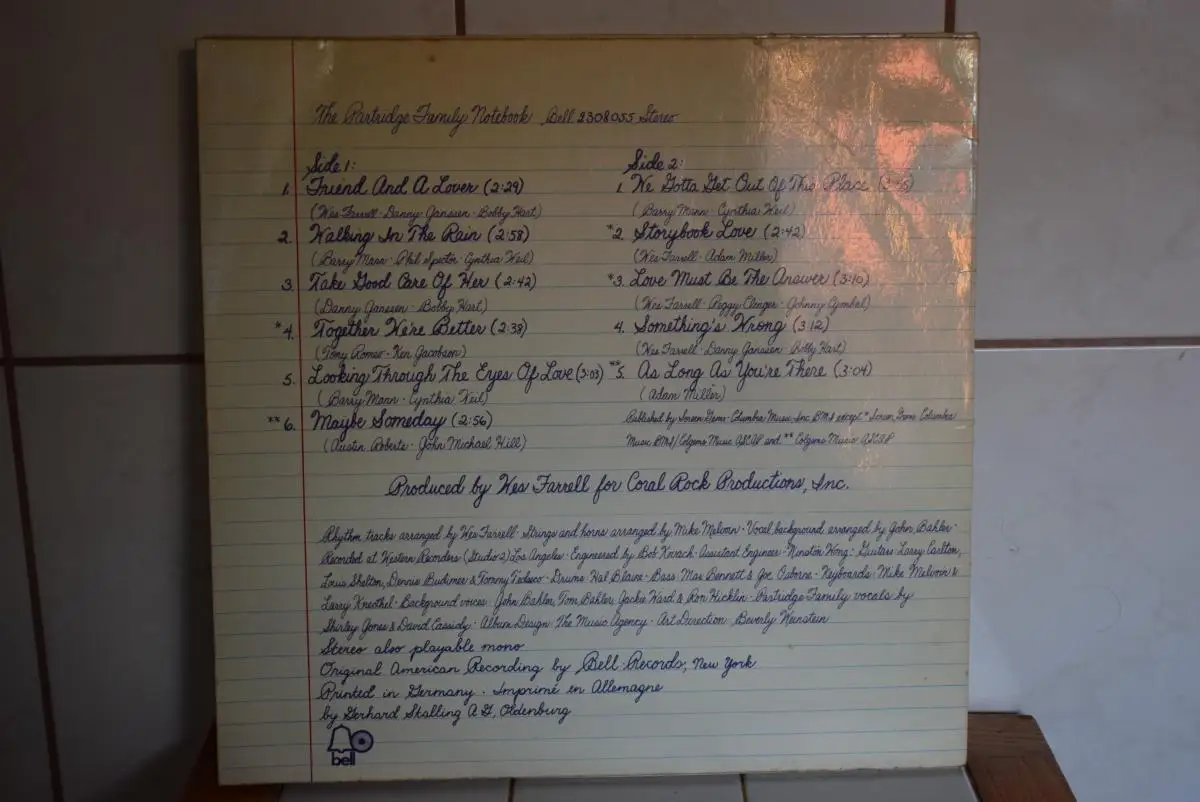 The Partridge Family Notebook Bell 2308055 Stereo
Side 1:
1. Friend And A Lover (2:29)
(Wes Farrell · Danny Janssen · Bobby Hart)
2. Walking In The Rain (2:58)
(Barry Mann · Phil Spector · Cynthia Weil)
3. Take Good Care Of Her (2:42)
(Danny Janssen · Bobby Hart)
*4. Together We're Better (2:38)
(Tony Romeo · Ken Jacobson)
5. Looking Through The Eyes Of Love (3:03)
(Barry Mann · Cynthia Weil)
**6. Maybe Someday (2:56)
(Austin Roberts · John Michael Hill)
Side 2:
1. We Gotta Get Out Of This Place
(Barry Mann · Cynthia Weil)
*2. Storybook Love (2:42)
(Wes Farrell · Adam Miller)
*3. Love Must Be The Answer (3:10)
(Wes Farrell · Peggy Clinger · Johnny Cymbal)
4. Something's Wrong (3:12)
(Wes Farrell · Danny Janssen · Bobby Hart)
**5. As Long As You're There (3:04)
(Adam Miller)
Published by Screen Gems-Columbia Music Inc BMI except * Screen Gems Columbia
Music BMI/Colgems Music ASCAP and ** Colgems Music ASCAP
Produced by Wes Farrell for Coral Rock Productions, Inc.
Rhythm tracks arranged by Wes Farrell · Strings and horns arranged by Mike Melvoin · Vocal background arranged by John Bahler ·
Recorded at Western Recorders (Studio 2) Los Angeles · Engineered by Bob Kovach · Assistant Engineer · Winston Wong · Guitars Larry Carlton,
Louis Shelton, Dennis Budimer & Tommy Tedesco · Drums Hal Blaine · Bass Max Bennett & Joe Osborne · Keyboards Mike Melvoin &
Larry Knechtel · Background voices John Bahler, Tom Bahler, Jackie Ward & Ron Hicklin · Partridge Family vocals by
Shirley Jones & David Cassidy · Album Design The Music Agency · Art Direction Beverly Weinstein
Stereo also playable mono
Original American Recording by Bell Records, New York
Printed in Germany · Imprimé en Allemagne
by Gerhard Stalling A G, Oldenburg
bell